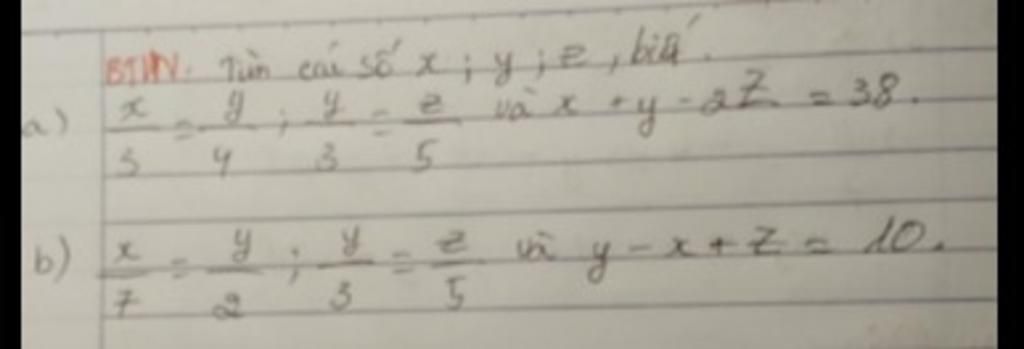 BTVN. Tìm các số x ; y ; z , biết.
a) x/3 = y/4 ; y/3 = z/5 và x + y - 2z = 38.
b) x/7 = y/2 ; y/3 = z/5 và y - x + z = 10.